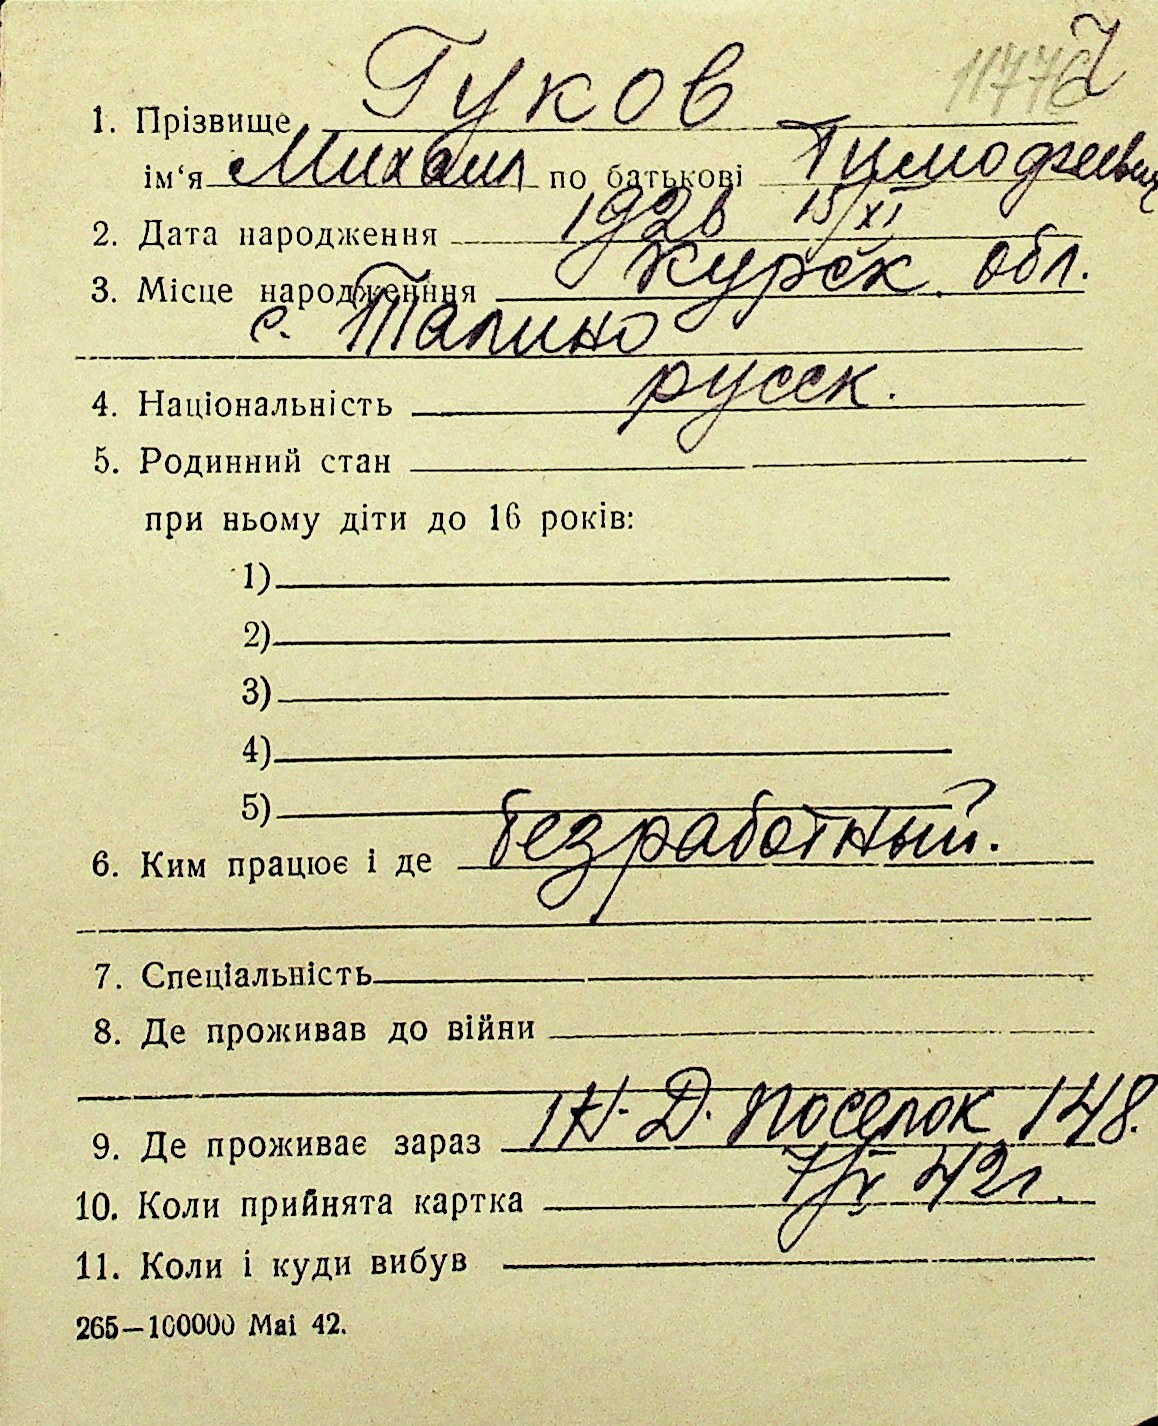 11776 7
1. Прізвище Гуков
ім‘я Михаил по батькові Тимофеевич
2. Дата народження 1926 15/XI
3. Місце народженння Курск. обл.
с. Талино
4. Національність русск.
5. Родинний стан
при ньому діти до 16 років:
1)
2)
3)
4)
5)
6. Ким працює і де безработный.
7. Спеціальність
8. Де проживав до війни
9. Де проживає зараз Н-Д. поселок 148.
10. Коли прийнята картка 42г.
11. Коли і куди вибув
265—100000 Маі 42.